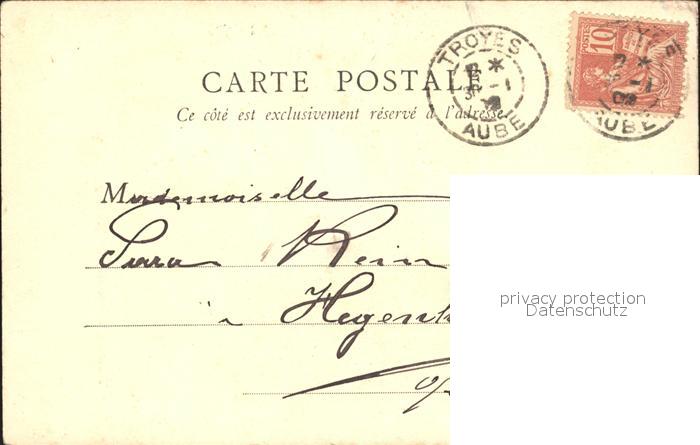 TROYES
AUBE
POSTES
10
AUBE
CARTE POSTALE
Ce côté est exclusivement réservé à l'adresse
Mademoiselle
Rein
à
privacy protection
Datenschutz